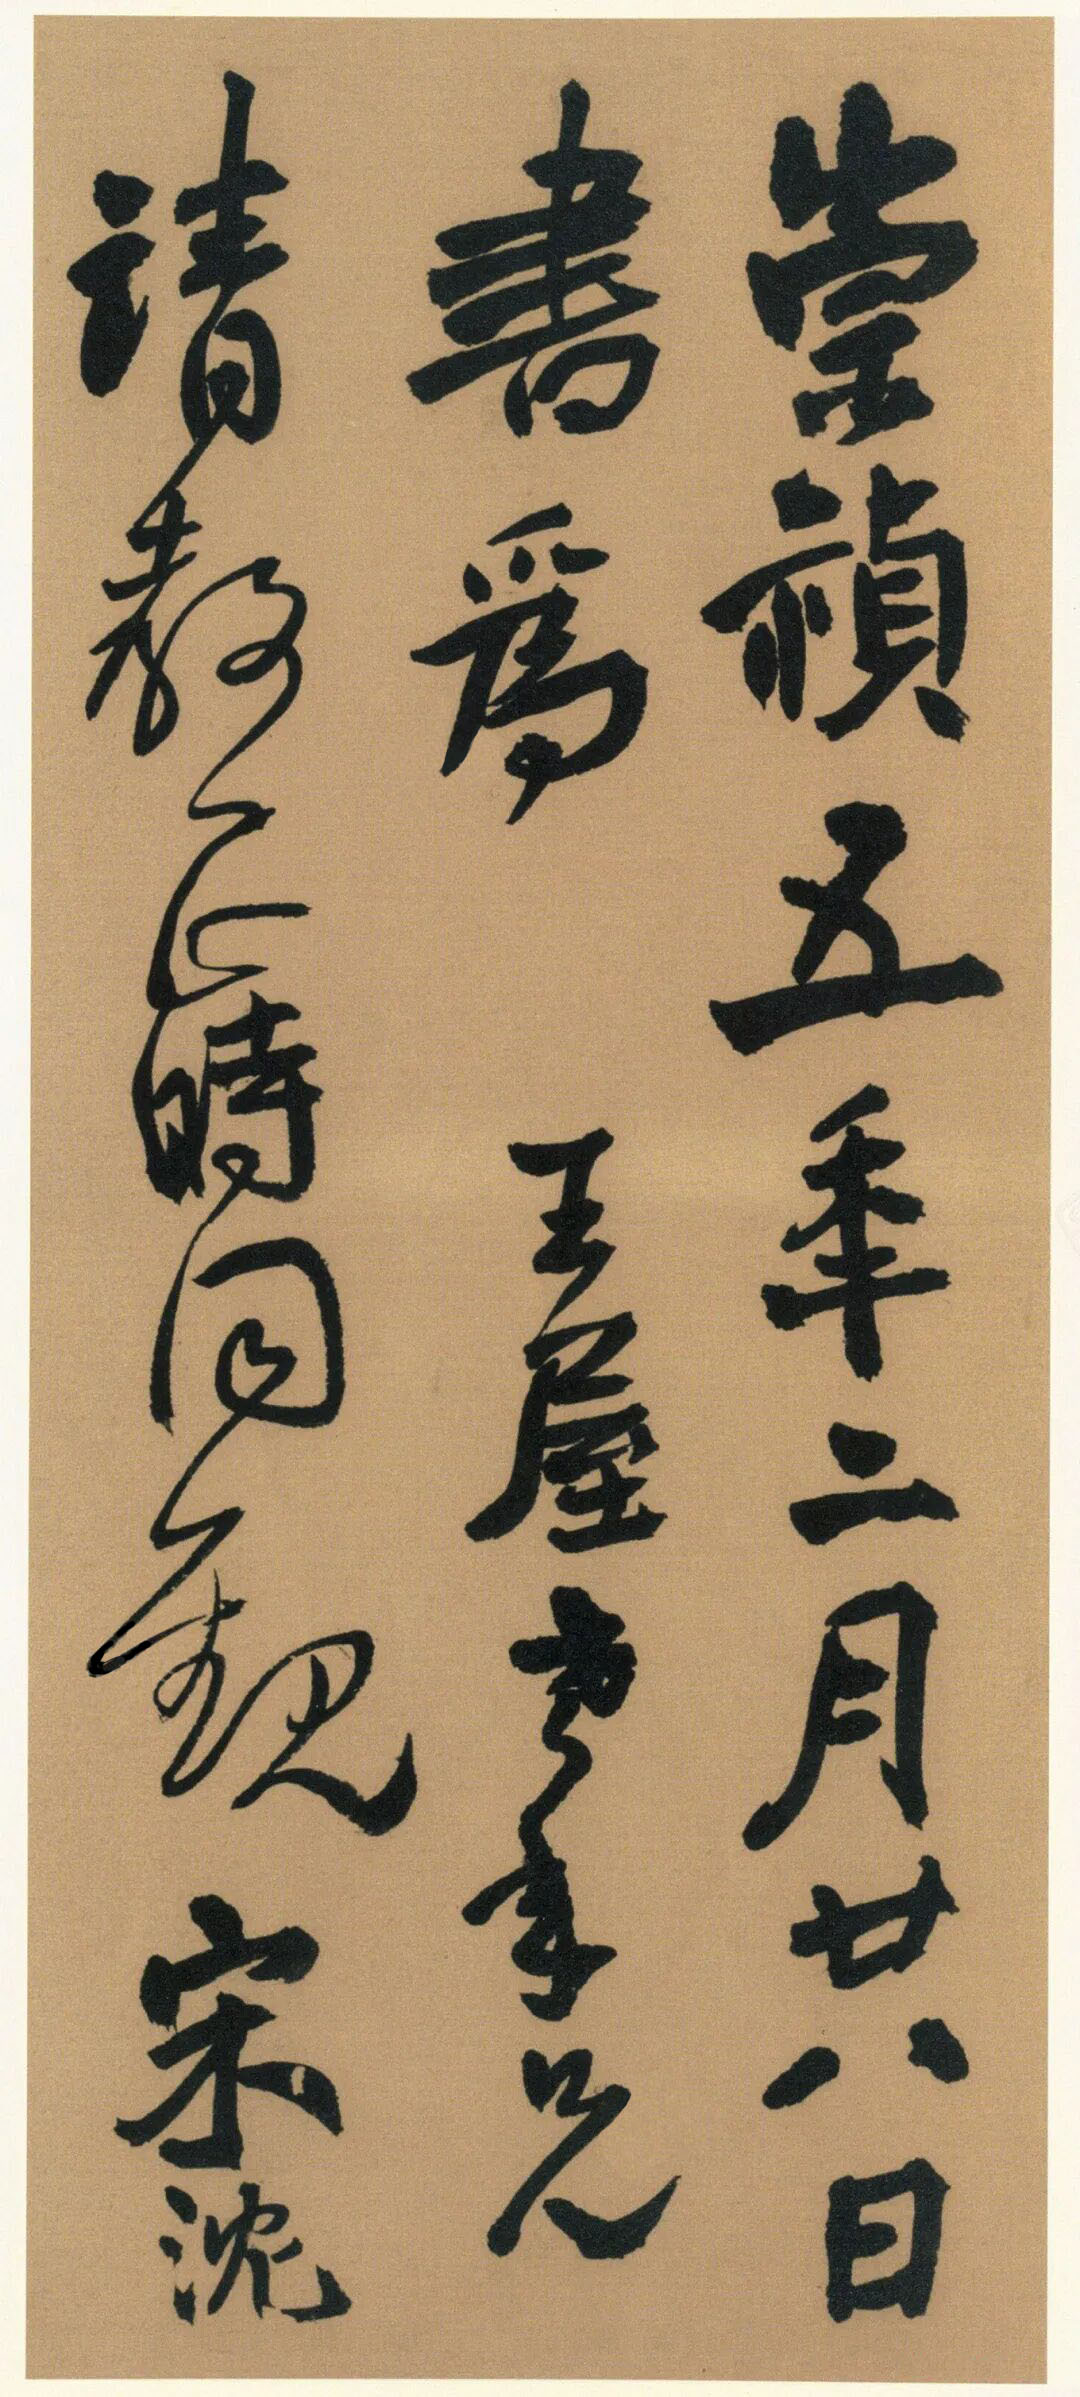 崇禎五年二月廿八日
書爲王屋老年兄
請教正時同觀宋沈